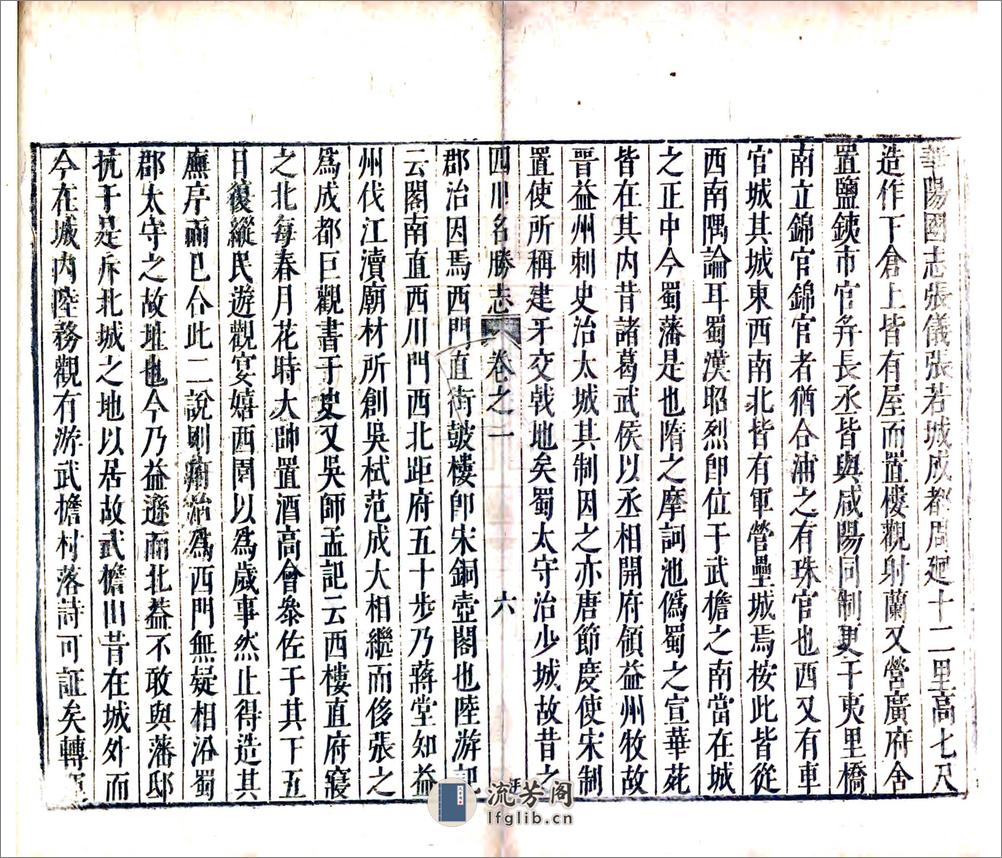 華陽國志張儀張若城成都周廻十二里高七尺
造作下倉上皆有屋而置樓觀射蘭又營廣府舍
置鹽鐵市官并長丞皆與咸陽同制史于夷里橋
南立錦官錦官者猶合浦之有珠官也西又有車
官城其城東西南北皆有軍營壘城焉按此皆從
西南隅論耳蜀漢昭烈卽位于武檐之南當在城
之正中今蜀藩是也隋之摩訶池僞蜀之宣華苑
皆在其內昔諸葛武侯以丞相開府領益州牧故
晉益州刺史治太城其制因之亦唐節度使宋制
置使所稱建牙交戟地矣蜀太守治少城故昔之
四川名勝志
卷之一
六
郡治因焉西門直街鼓樓卽宋銅壺閣也陸游記
云閣南直西川門西北距府五十步乃蔣堂知益
州伐江瀆廟材所創吳栻范成大相繼而侈張之
爲成都巨觀書于史又吳師孟記云西樓直府寢
之北每春月花時大帥置酒高會叅佐于其下五
日復縱民遊觀宴嬉西園以爲歲事然止得造其
廡序而已合此二說則府治爲西門無疑相沿蜀
郡太守之故址也今乃益遜而北葢不敢與藩邸
抗于是斥北城之地以居故武檐山昔在城外而
今在城內陸務觀有游武檐村落詩可証矣轉
流芳阁
lfglib.cn